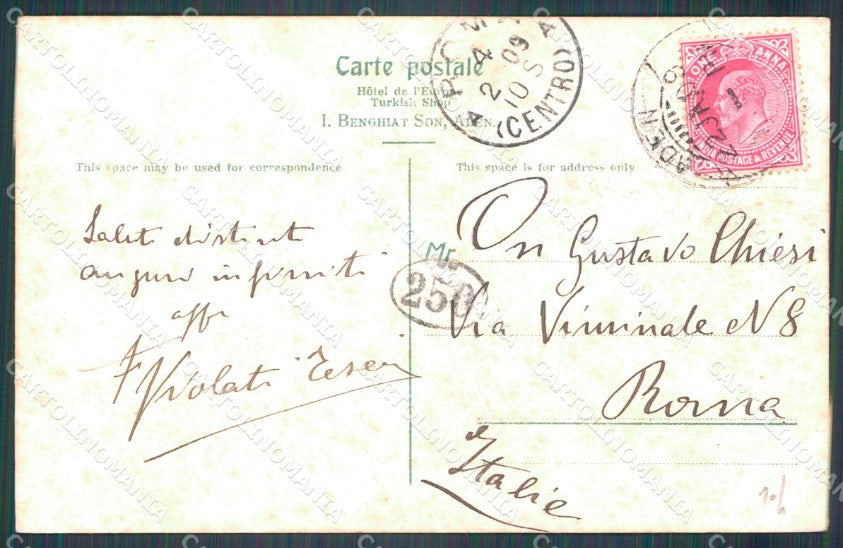 Carte postale
Hôtel de l'Europe
Turkish Shop
I. BENGHIAT SON, ADEN.
ROMA
4 2 09
10 S
(CENTRO)
ONE ANNA
INDIA POSTAGE & REVENUE
ADEN
This space may be used for correspondence
This space is for address only
Saluti distinti
auguri infiniti
affr
Mr.
250
On Gustavo Chiesi
Via Viminale N 8
Roma
Italie
CARTOLINOMANIA